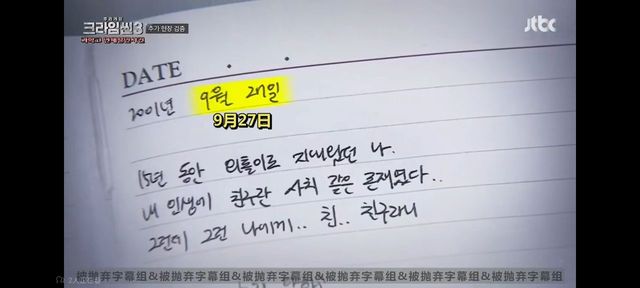 크라임씬3 추가 현장 검증
jtbc
DATE . .
2001년 9월 27일
9月27日
15년 동안 외톨이로 지내왔던 나.
내 인생에 친구란 사치 같은 존재였다..
그런데 그런 나에게.. 친.. 친구라니
被抛弃字幕组&被抛弃字幕组&被抛弃字幕组&被抛弃字幕组&被抛弃字幕组